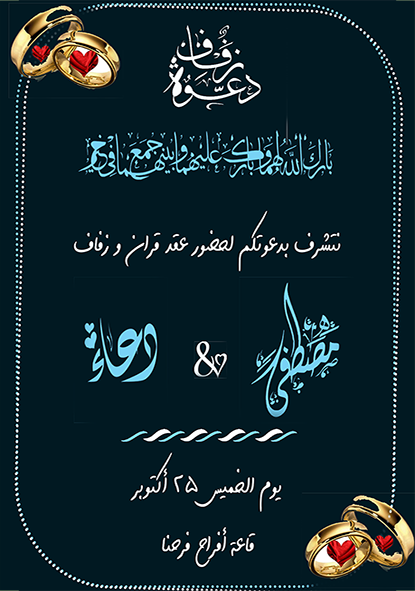 دعوة زفاف
بارك الله لهما وبارك عليهما وجمع بينهما في خير
نتشرف بدعوتكم لحضور عقد قران و زفاف
مصطفى & دعاء
يوم الخميس ٢٥ أكتوبر
قاعة أفراح فرحنا